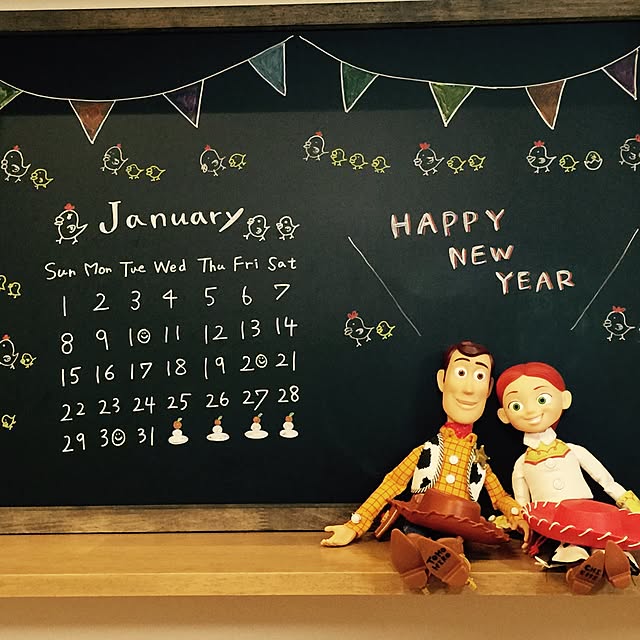 January
Sun Mon Tue Wed Thu Fri Sat
1 2 3 4 5 6 7
8 9 10 11 12 13 14
15 16 17 18 19 20 21
22 23 24 25 26 27 28
29 30 31
HAPPY
NEW
YEAR
TOMO
HIRO